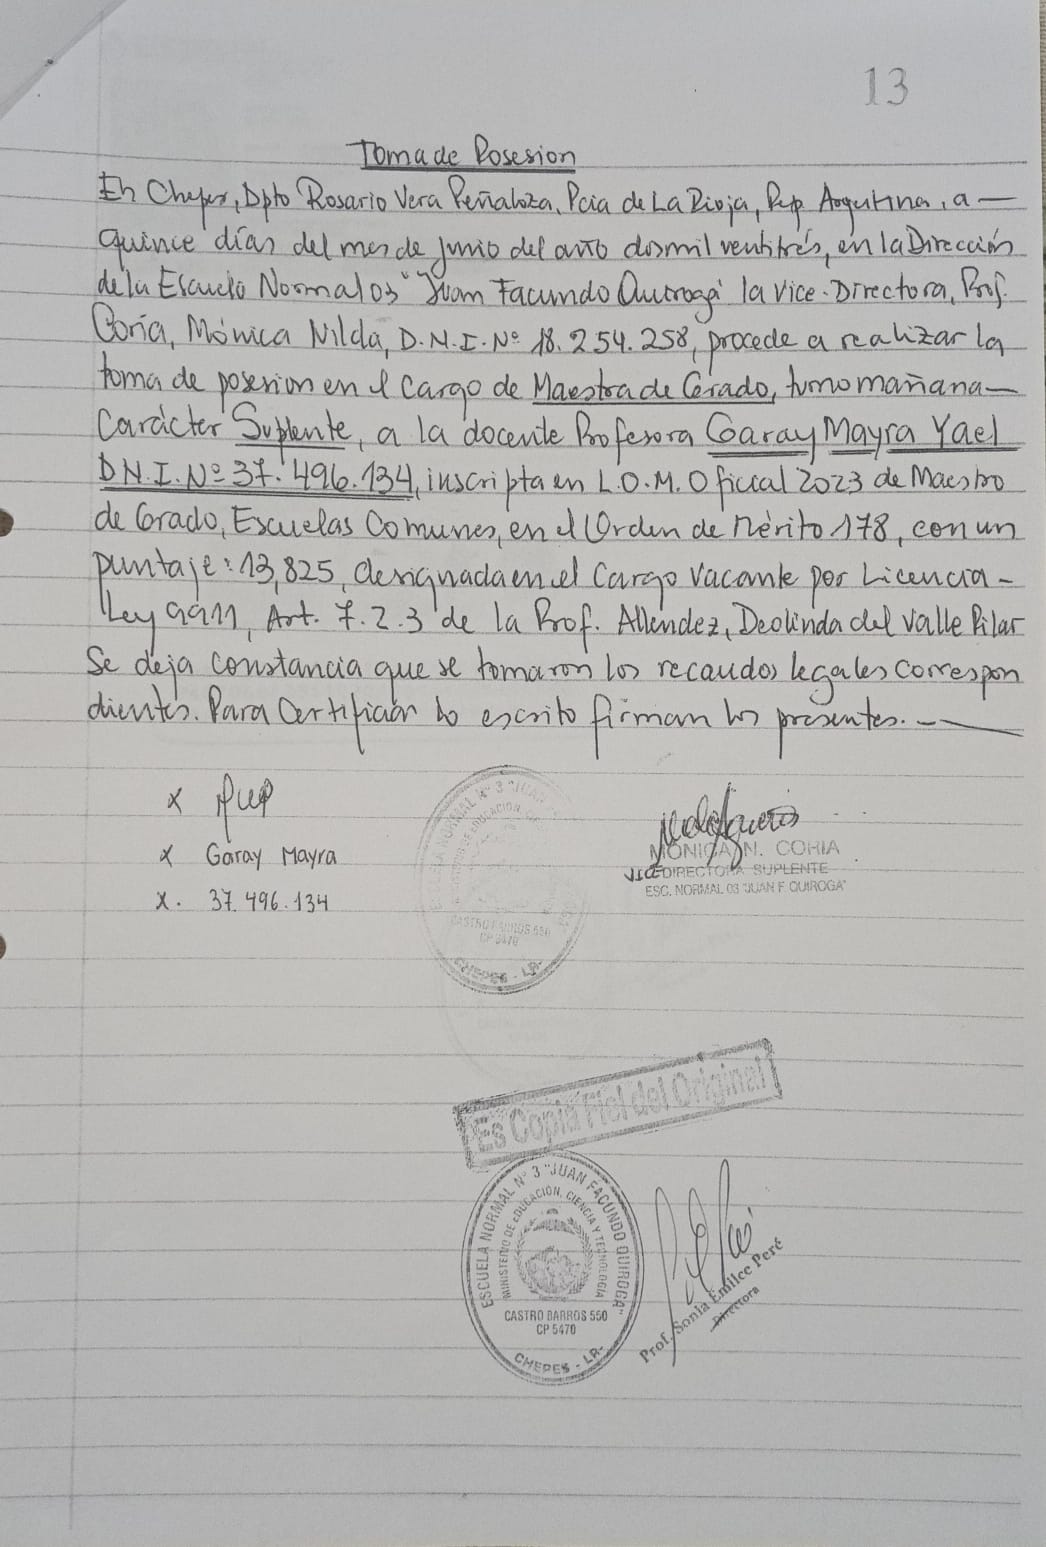 13
Toma de Posesion
En Chepes, Dpto Rosario Vera Peñaloza, Pcia de La Rioja, Rep Argentina, a —
quince días del mes de junio del año dosmil ventitrés, en la Dirección
de la Escuela Normal 03 "Juan Facundo Quiroga" la Vice-Directora, Prof.
Coria, Mónica Nilda, D.N.I. Nº 18.254.258, procede a realizar la
toma de posesion en el Cargo de Maestra de Grado, turno mañana —
Carácter Suplente, a la docente Profesora Garay Mayra Yael
D.N.I. Nº 37.496.134, inscripta en L.O.M. Oficial 2023 de Maestro
de Grado, Escuelas Comunes, en el Orden de Mérito 178, con un
puntaje: 13,825, designada en el Cargo Vacante por Licencia -
Ley 9911, Art. 7.2.3 de la Prof. Allendez, Deolinda del Valle Pilar
Se deja constancia que se tomaron los recaudos legales correspon
dientes. Para Certificar lo escrito firman los presentes. —
x
x Garay Mayra
x. 37.496.134
ESCUELA NORMAL Nº 3 "JUAN
CASTRO BARROS 550
CP 5470
CHEPES - LR-
MONICA N. CORIA
VICEDIRECTORA SUPLENTE
ESC. NORMAL 03 "JUAN F QUIROGA"
Es Copia Fiel del Original
ESCUELA NORMAL Nº 3 "JUAN FACUNDO QUIROGA"
MINISTERIO DE EDUCACIÓN, CIENCIA Y TECNOLOGIA
CASTRO BARROS 550
CP 5470
CHEPES - LR-
Prof. Sonia Emilce Peré
Directora